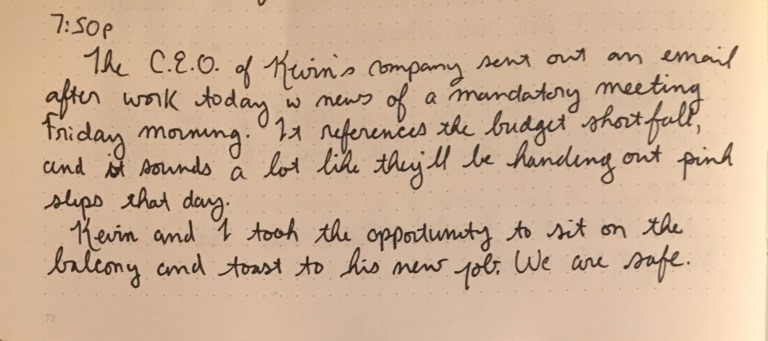 7:50p
The C.E.O. of Kevin's company sent out an email
after work today w news of a mandatory meeting
Friday morning. It references the budget shortfall,
and it sounds a lot like they'll be handing out pink
slips that day.
Kevin and I took the opportunity to sit on the
balcony and toast to his new job. We are safe.
72